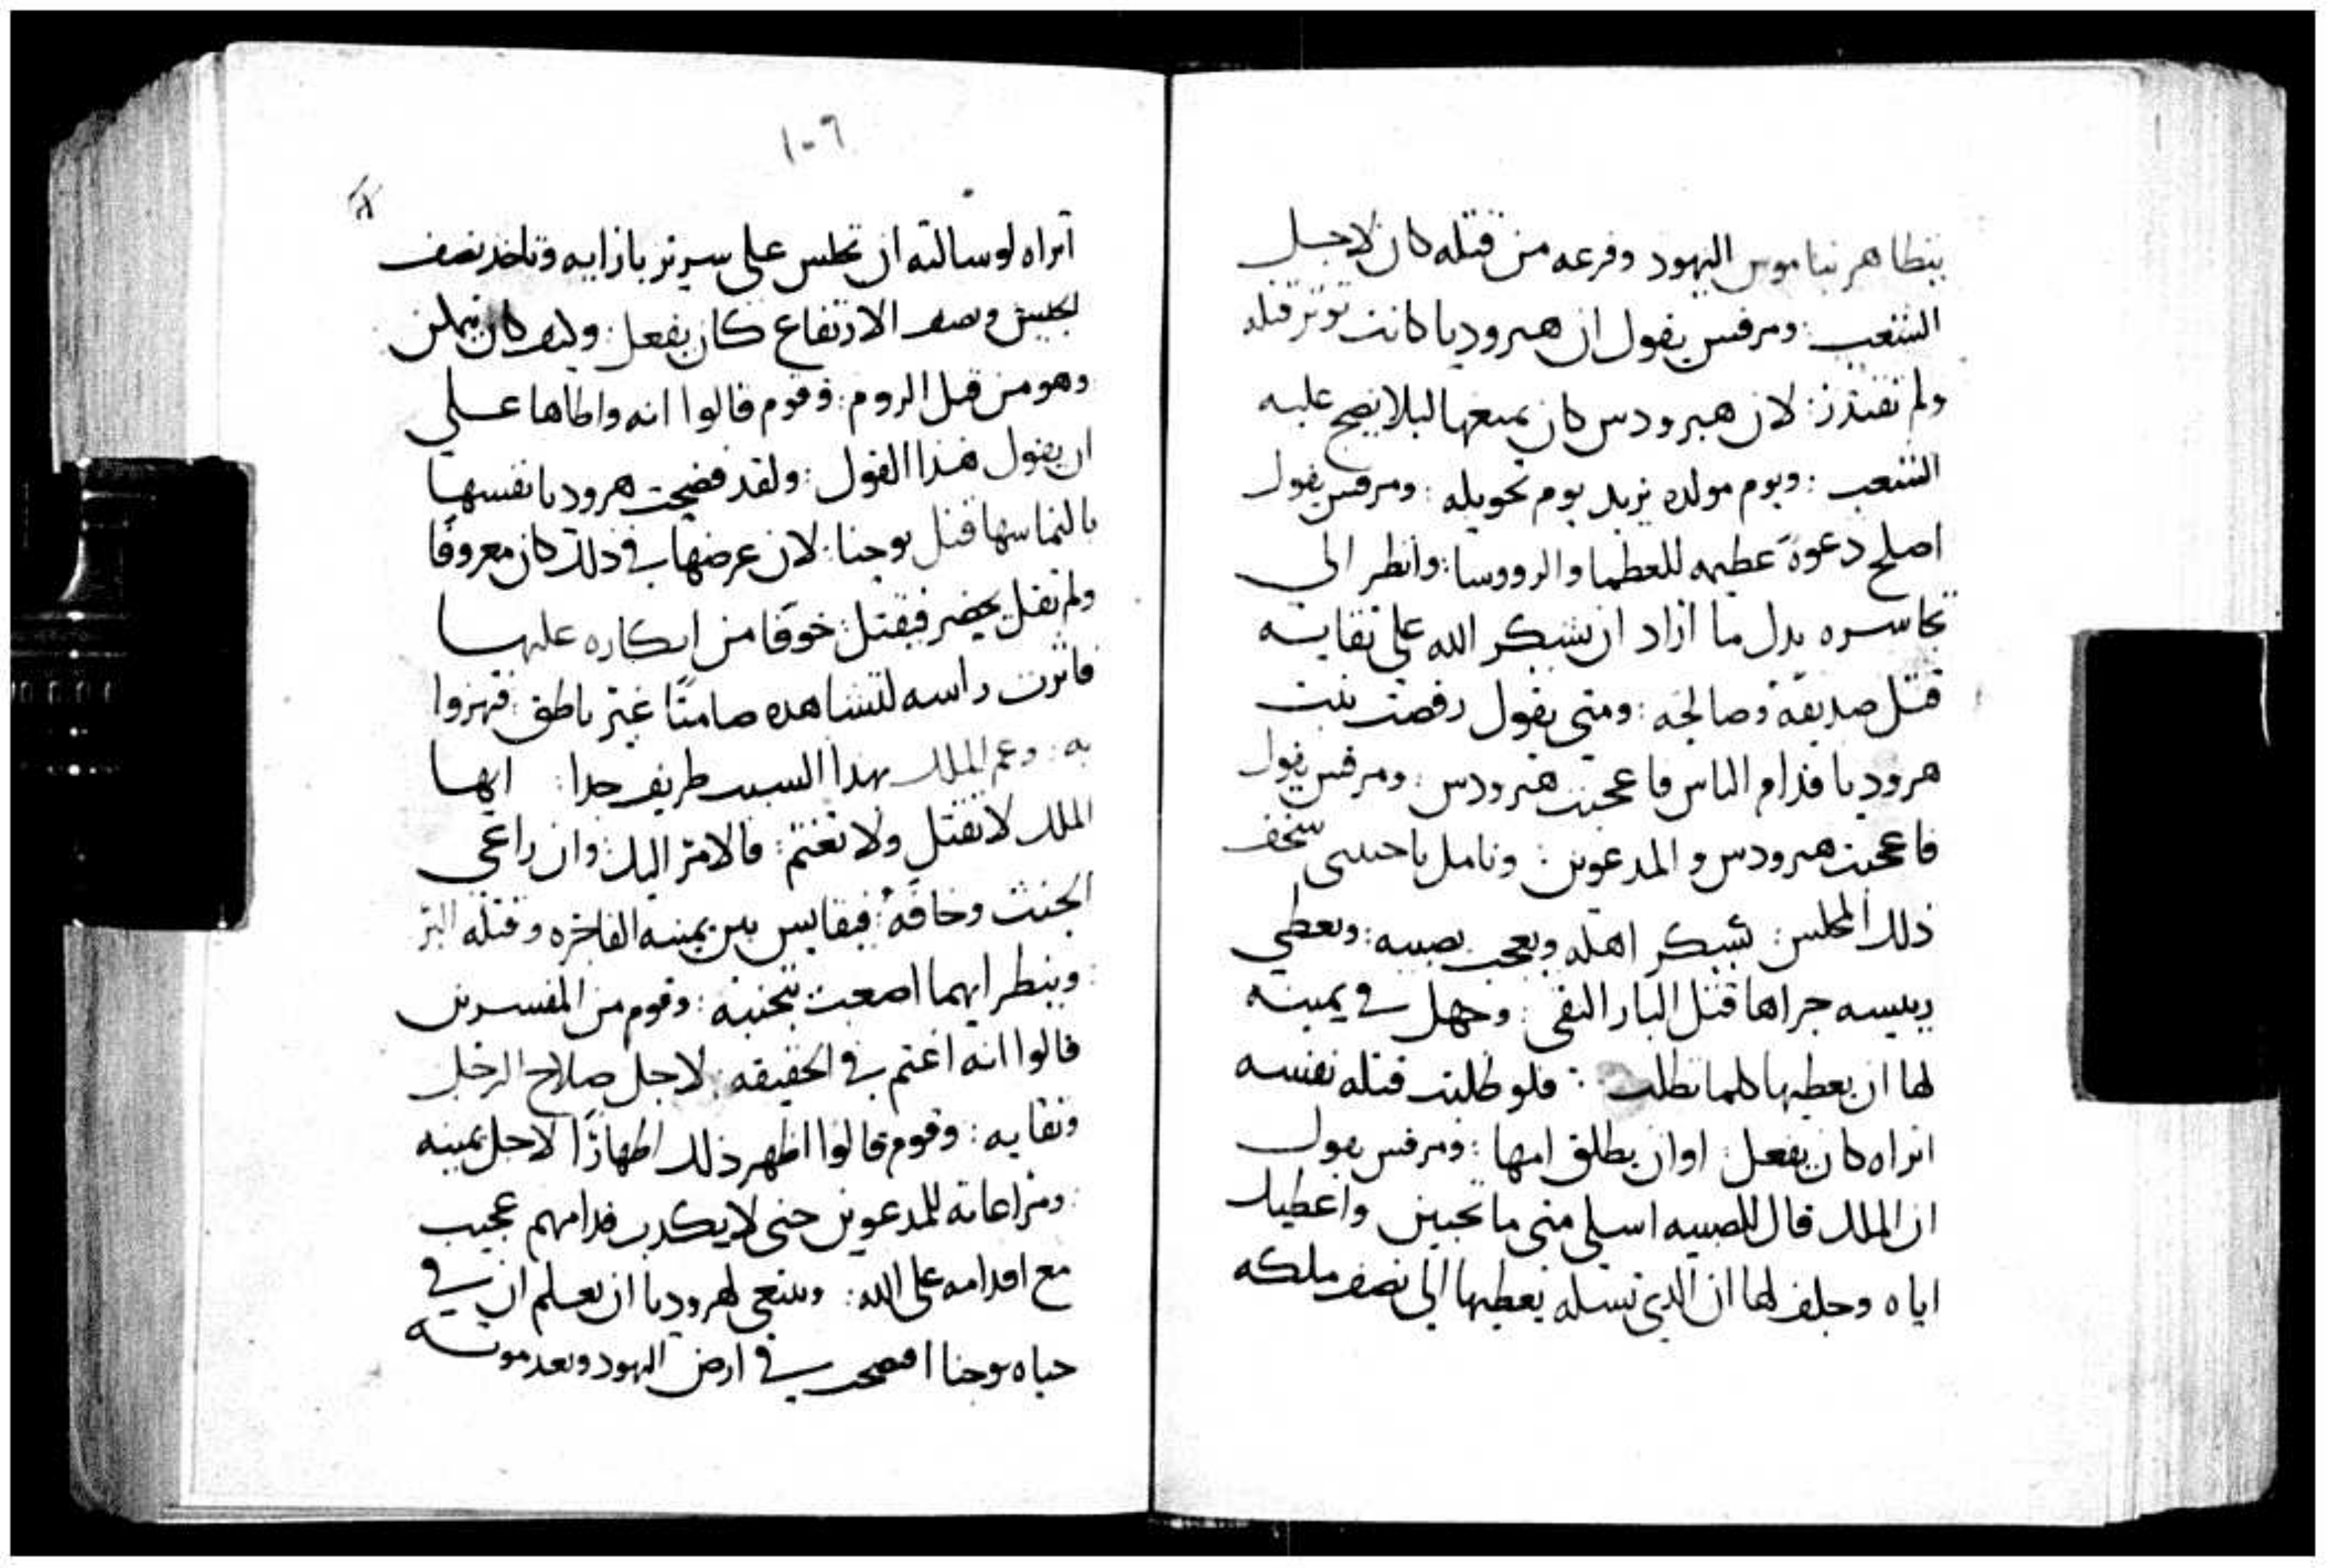 يتظاهر بناموس اليهود وفزعه من قتله كان لاجل
الشعب : ومرقس يقول ان هيروديا كانت توثر قتله
ولم تقتدر : لان هيرودس كان يمنعها ليلا يضج عليه
الشعب : ويوم مولده يريد يوم تحويله : ومرقس يقول
اصلح دعوة عظيمه للعظما والرووسا : وانظر الى
تجاسره بدل ما اراد ان يشكر الله على بقايه
قتل صديقه وصالحه : ومتى يقول رقصت بنت
هروديا قدام الناس فاعجبت هيرودس : ومرقس يقول
فاعجبت هيرودس والمدعوين : وتامل يا حبيبى سخف
ذلك المجلس : يسكر اهله ويعجب بصبيه : ويعطي
رييسه جزاها قتل البار النقى : وجهل في يمينه
لها ان يعطيها كلما تطلب : فلو طلبت قتله نفسه
اتراه كان يفعل : او ان يطلق امها : ومرقس يقول
ان الملك قال للصبيه اسلى منى ما تحبين واعطيك
اياه وحلف لها ان الذي تسله يعطيها الى نصف ملكه
١٠٦
اتراه لو سالته ان تجلس على سرير بازايه وتاخذ نصف
الجيش ونصف الارتفاع كان يفعل : وكيف كان يتمكن
وهو من قبل الروم : وقوم قالوا انه واطاها على
ان يقول هذا القول : ولقد فضحت هروديا نفسها
بالتماسها قتل يوحنا : لان غرضها في ذلك كان معروفًا
ولم تقل يحضر فيقتل : خوفًا من انكاره عليها
فاثرت راسه لتشاهده صامتًا غير ناطق : فتهزوا
به : وغم الملك بهذا السبب طريف جدا : ايها
الملك لا تقتل ولا تغتم : فالامر اليك : وان راعى
الحنث وخافه : فيقايس بين يمينه الفاجره وقتله البر
: وينظر ايهما اصعب تجنبه : وقوم من المفسرين
قالوا انه اغتم في الحقيقه : لاجل صلاح الرجل
ونقايه : وقوم قالوا اظهر ذلك اظهارًا لاجل يمينه
: ومراعاته للمدعوين حتى لا يكذب قدامهم عجيب
مع اقدامه على الله : وينبغى لهروديا ان تعلم ان في
حياه يوحنا افتضحت في ارض اليهود وبعد موته